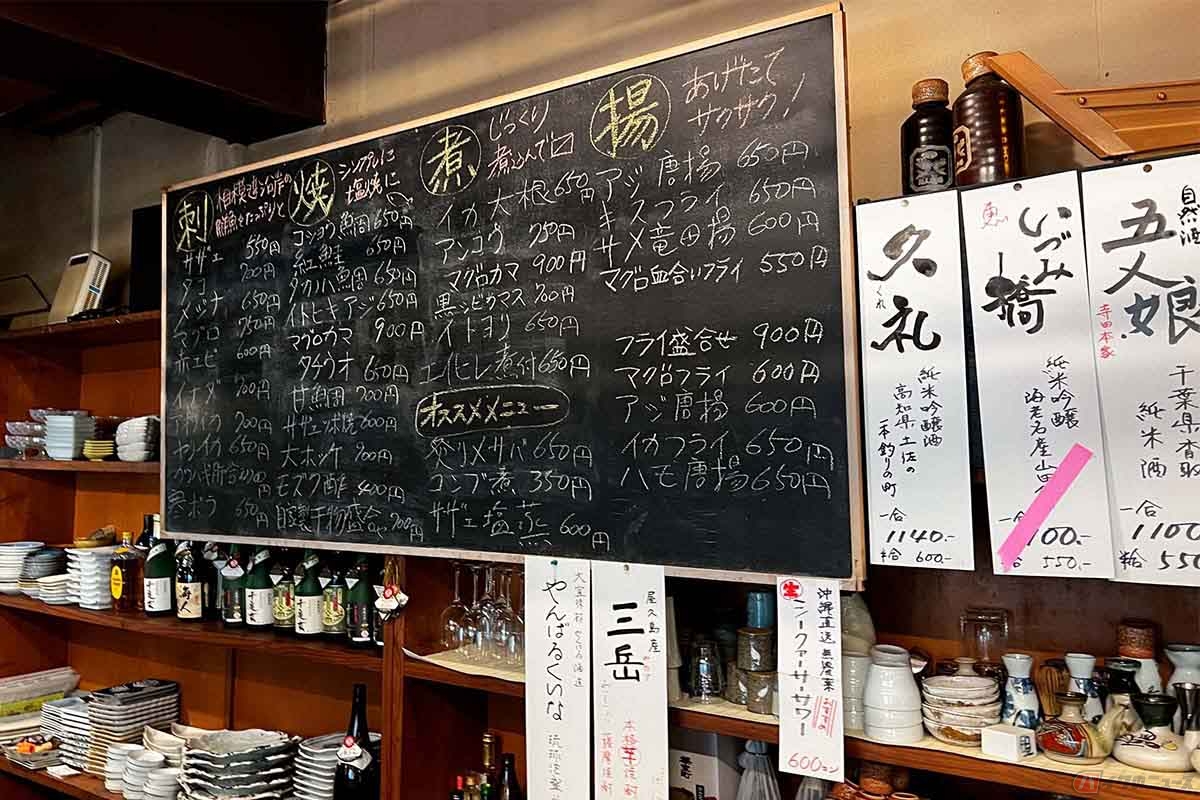 刺
相模湾沿岸の
鮮魚をたっぷりと
サザエ 550円
タコ 700円
メジナ 650円
マグロ 750円
赤エビ 600円
イナダ 700円
アオリイカ 700円
650円
650円
焼
シンプルに
塩焼に
コショウ鯛 650円
紅鮭 650円
タカノハ鯛 650円
イトヒキアジ 650円
マグロカマ 900円
タチウオ 650円
甘鯛 700円
サザエつぼ焼 600円
大ホッケ 900円
モズク酢 400円
自家製干物盛合せ 900円
煮
じっくり
煮込んで
イカ大根 650円
アンコウ 750円
マグロカマ 900円
黒シビカマス 700円
イトヨリ 650円
エイヒレ煮付 650円
オススメメニュー
炙りメサバ 650円
コンブ煮 350円
サザエ塩蒸 600円
揚
あげたて
サクサク!
アジ唐揚 650円
キスフライ 650円
サメ竜田揚 600円
マグロ血合いフライ 550円
フライ盛合せ 900円
マグロフライ 600円
アジ唐揚 600円
イカフライ 650円
ハモ唐揚 650円
久礼
くれ
純米吟醸酒
高知県土佐の
一本釣りの町
一合 1140.-
半合 600.-
いづみ橋
純米吟醸
海老名産山田
一合 1100.-
550.-
自然酒
五人娘
寺田本家
千葉県香取
純米酒
一合 1100
半合 550
やんばるくいな
屋久島産
三岳
みたけ
本格芋焼酎
薩摩焼酎
生シークァーサーサワー
沖縄直送 無農薬
600コン